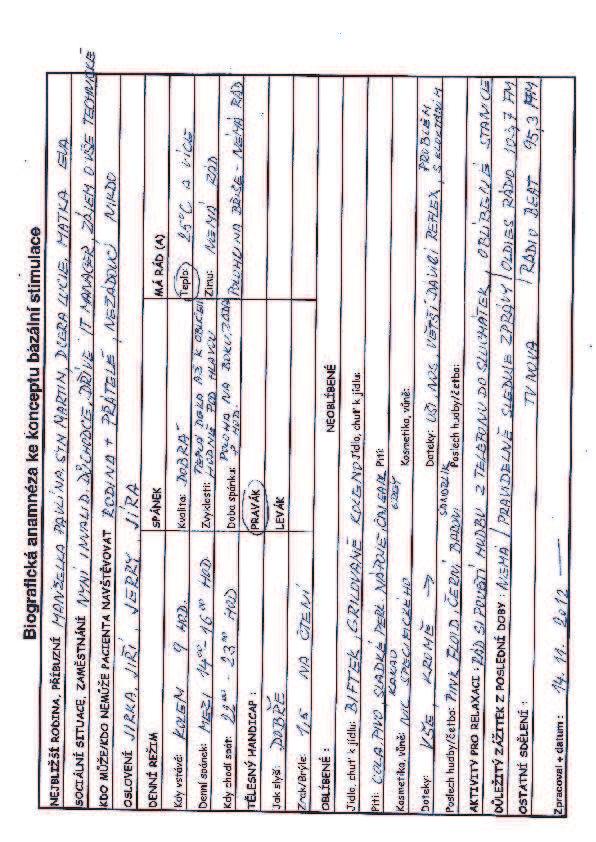 Biografická anamnéza ke konceptu bazální stimulace
NEJBLIŽŠÍ RODINA, PŘÍBUZNÍ MANŽELKA PAVLÍNA, SYN MARTIN, DCERA LUCIE, MATKA EVA
SOCIÁLNÍ SITUACE, ZAMĚSTNÁNÍ NYNÍ INVALID. DŮCHODCE, DŘÍVE IT MANAGER, ZÁJEM O VŠE TECHNICKÉ
KDO MŮŽE/KDO NEMŮŽE PACIENTA NAVŠTĚVOVAT RODINA + PŘÁTELÉ, NEŽÁDOUCÍ NIKDO
OSLOVENÍ JIRKA, JIŘÍ, JERRY, JÍRA
DENNÍ REŽIM SPÁNEK MÁ RÁD (A)
Kdy vstává: KOLEM 9 HOD. Kvalita: DOBRÁ Teplo: 25°C A VÍCE
Denní spánek: MEZI 14⁰⁰ 16⁰⁰ HOD Zvyklosti: TEPLÁ DEKA AŽ K OBLIČEJI HODNĚ POD HLAVOU Zimu: NEMÁ RÁD
Kdy chodí spát: 22⁰⁰ - 23⁰⁰ HOD Doba spánku: POLOHA NA BOKU, ZÁDA HOD POLOHU NA BŘIŠE - NEMÁ RÁD
TĚLESNÝ HANDICAP : PRAVÁK
Jak slyší: DOBŘE LEVÁK
Zrak/Brýle: 1,5 NA ČTENÍ
OBLÍBENÉ : NEOBLÍBENÉ
Jídlo, chuť k jídlu: BIFTEK, GRILOVANÉ KOLENO Jídlo, chuť k jídlu:
Pití: COLA, PIVO, SLADKÉ PERL. NÁPOJE, ČAJ, KAKAO Pití:
Kosmetika, vůně: NIC SPECIFICKÉHO Kosmetika, vůně:
Doteky: VŠE, KROMĚ → Doteky: UŠI, NOS, VĚTŠÍ DÁVIVÝ REFLEX, PROBLÉM S KLOKTÁNÍM
Poslech hudby/četba: PINK FLOID, ČERNÍ BARONI Poslech hudby/četba:
AKTIVITY PRO RELAXACI : RÁD SI POUŠTÍ HUDBU Z TELEFONU DO SLUCHÁTEK, OBLÍBENÉ STANICE
DŮLEŽITÝ ZÁŽITEK Z POSLEDNÍ DOBY : NEMÁ / PRAVIDELNĚ SLEDUJE ZPRÁVY / OLDIES RÁDIO 103,7 FM
OSTATNÍ SDĚLENÍ : TV NOVA / RÁDIO BEAT 95,3 FM
Zpracoval + datum : 14. 11. 2012